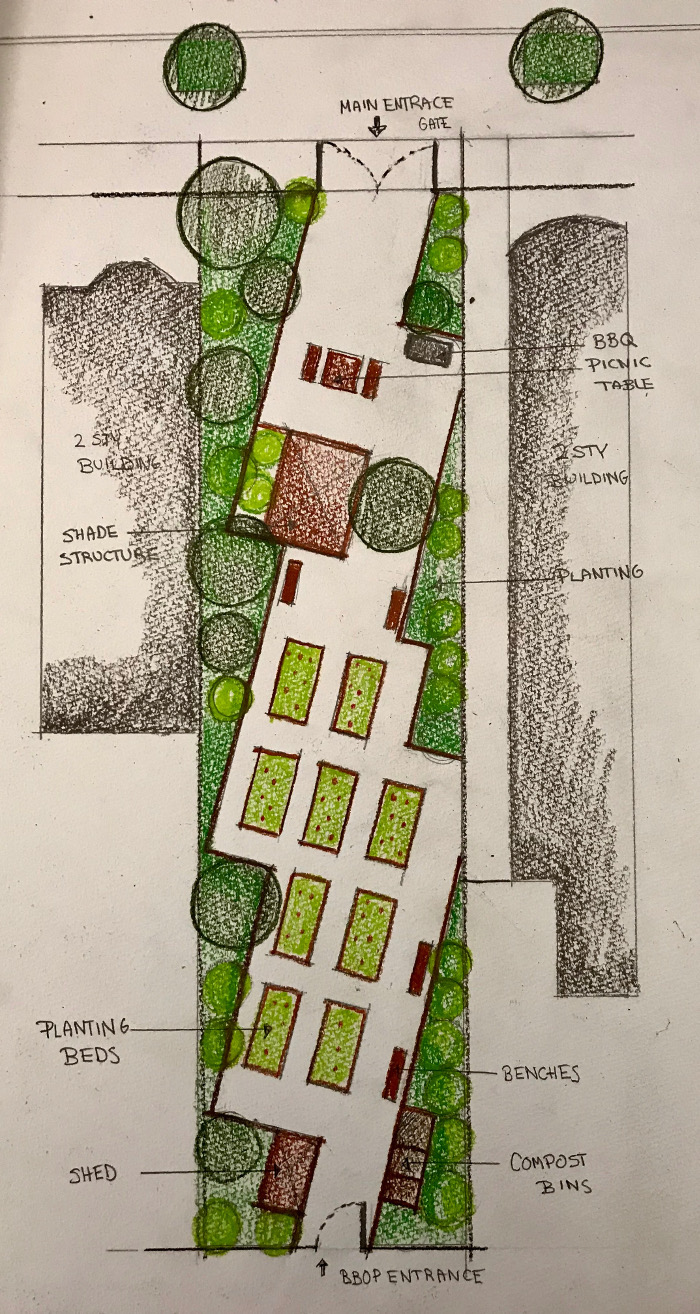 MAIN ENTRACE
GATE
BBQ
PICNIC
TABLE
2 STY
BUILDING
2 STY
BUILDING
SHADE
STRUCTURE
PLANTING
PLANTING
BEDS
BENCHES
SHED
COMPOST
BINS
BBOP ENTRANCE